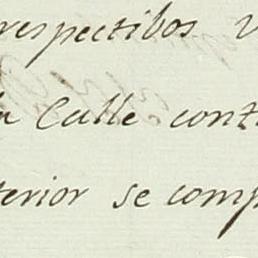 respectibos
la Calle cont
terior se comp